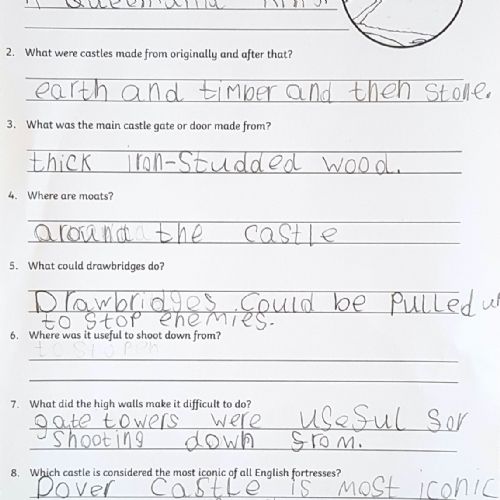 2. What were castles made from originally and after that?
earth and timber and then stone.
3. What was the main castle gate or door made from?
thick iron-studded wood.
4. Where are moats?
around the castle
5. What could drawbridges do?
Drawbridges could be pulled up
to stop enemies.
6. Where was it useful to shoot down from?
7. What did the high walls make it difficult to do?
gate towers were useful for
shooting down from.
8. Which castle is considered the most iconic of all English fortresses?
Dover Castle is most iconic